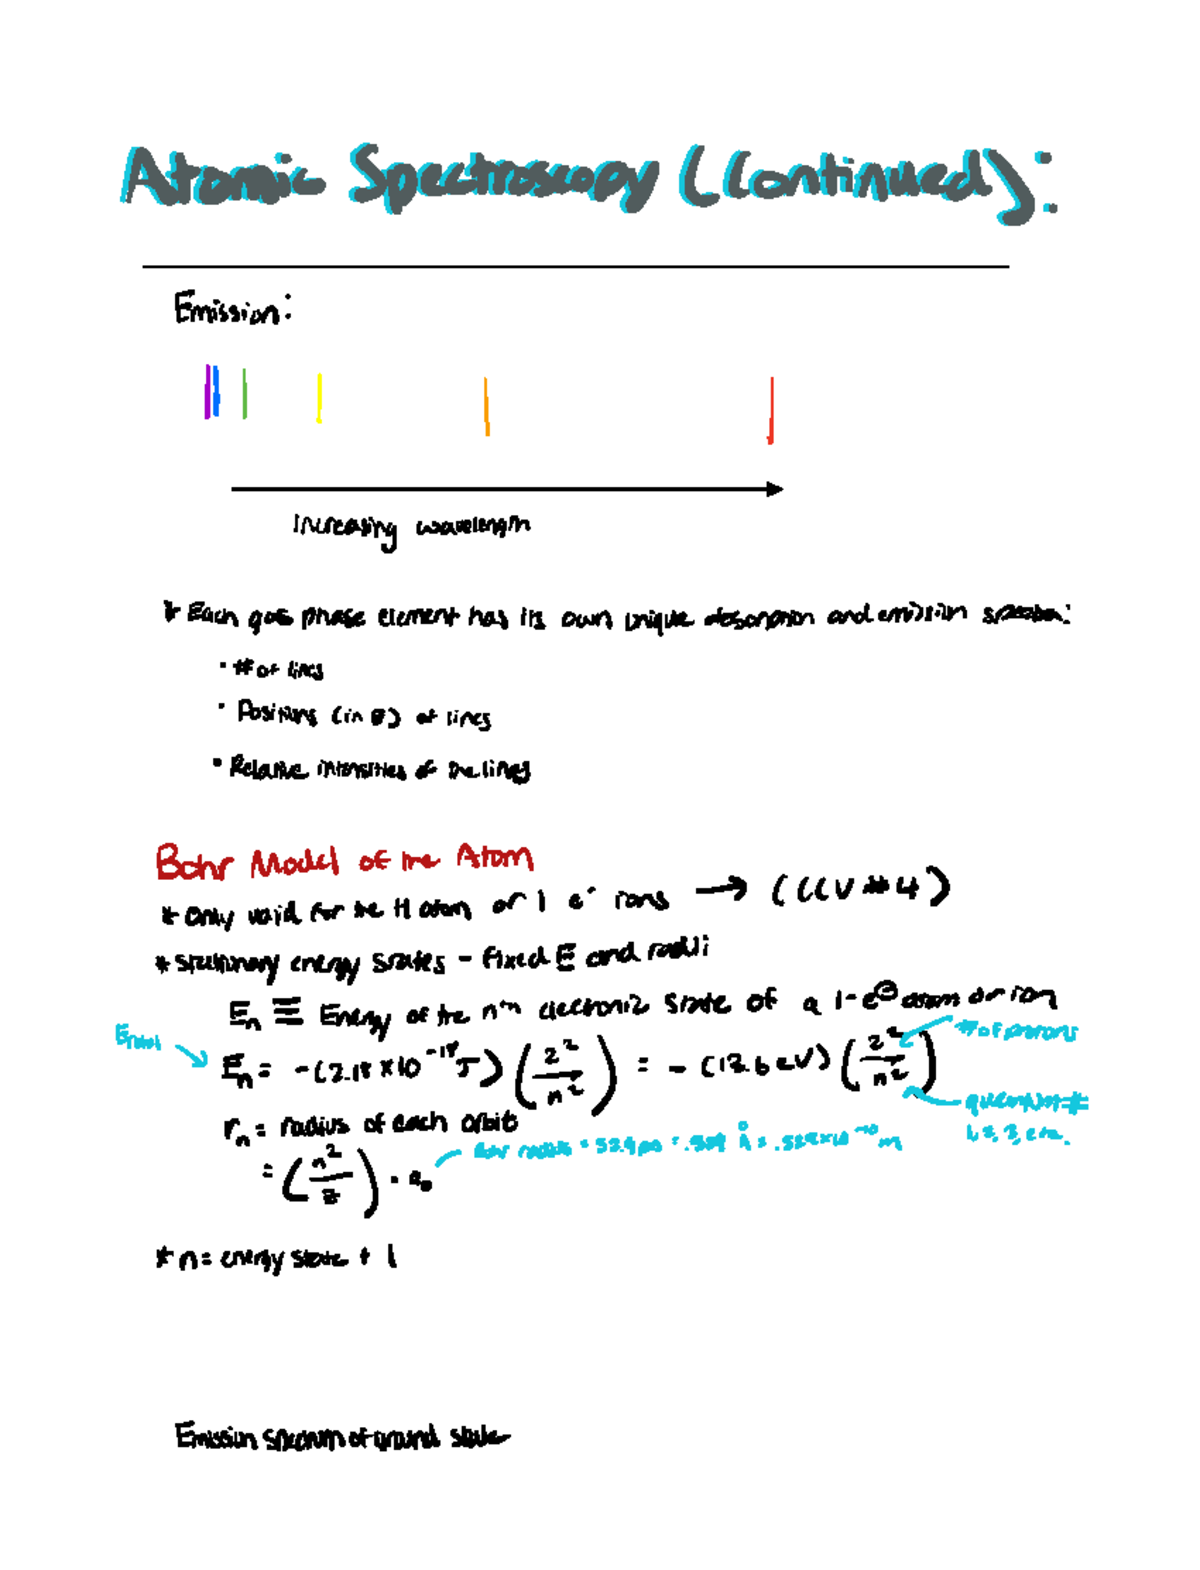 Atomic Spectroscopy (Continued):
Emission:
Increasing wavelength
* Each gas phase element has its own unique absorption and emission spectra:
• # of lines
• Positions (in E) of lines
• Relative intensities of the lines
Bohr Model of the Atom
* Only valid for the H atom or 1 e⁻ ions → (CCV #4)
* Stationary energy states - fixed E and radii
Eₙ ≡ Energy of the nᵗʰ electronic state of a 1-e⊖ atom or ion
# of protons
Etotal
Eₙ = -(2.18 x 10⁻¹⁸ J) (Z²/n²) = - (13.6 eV) (Z²/n²)
quantum #
1, 2, 3, etc.
rₙ = radius of each orbit
Bohr radius = 52.9 pm = .529 Å = .529x10⁻¹⁰ m
= (n²/Z) · a₀
* n = energy state + 1
Emission spectrum of ground state